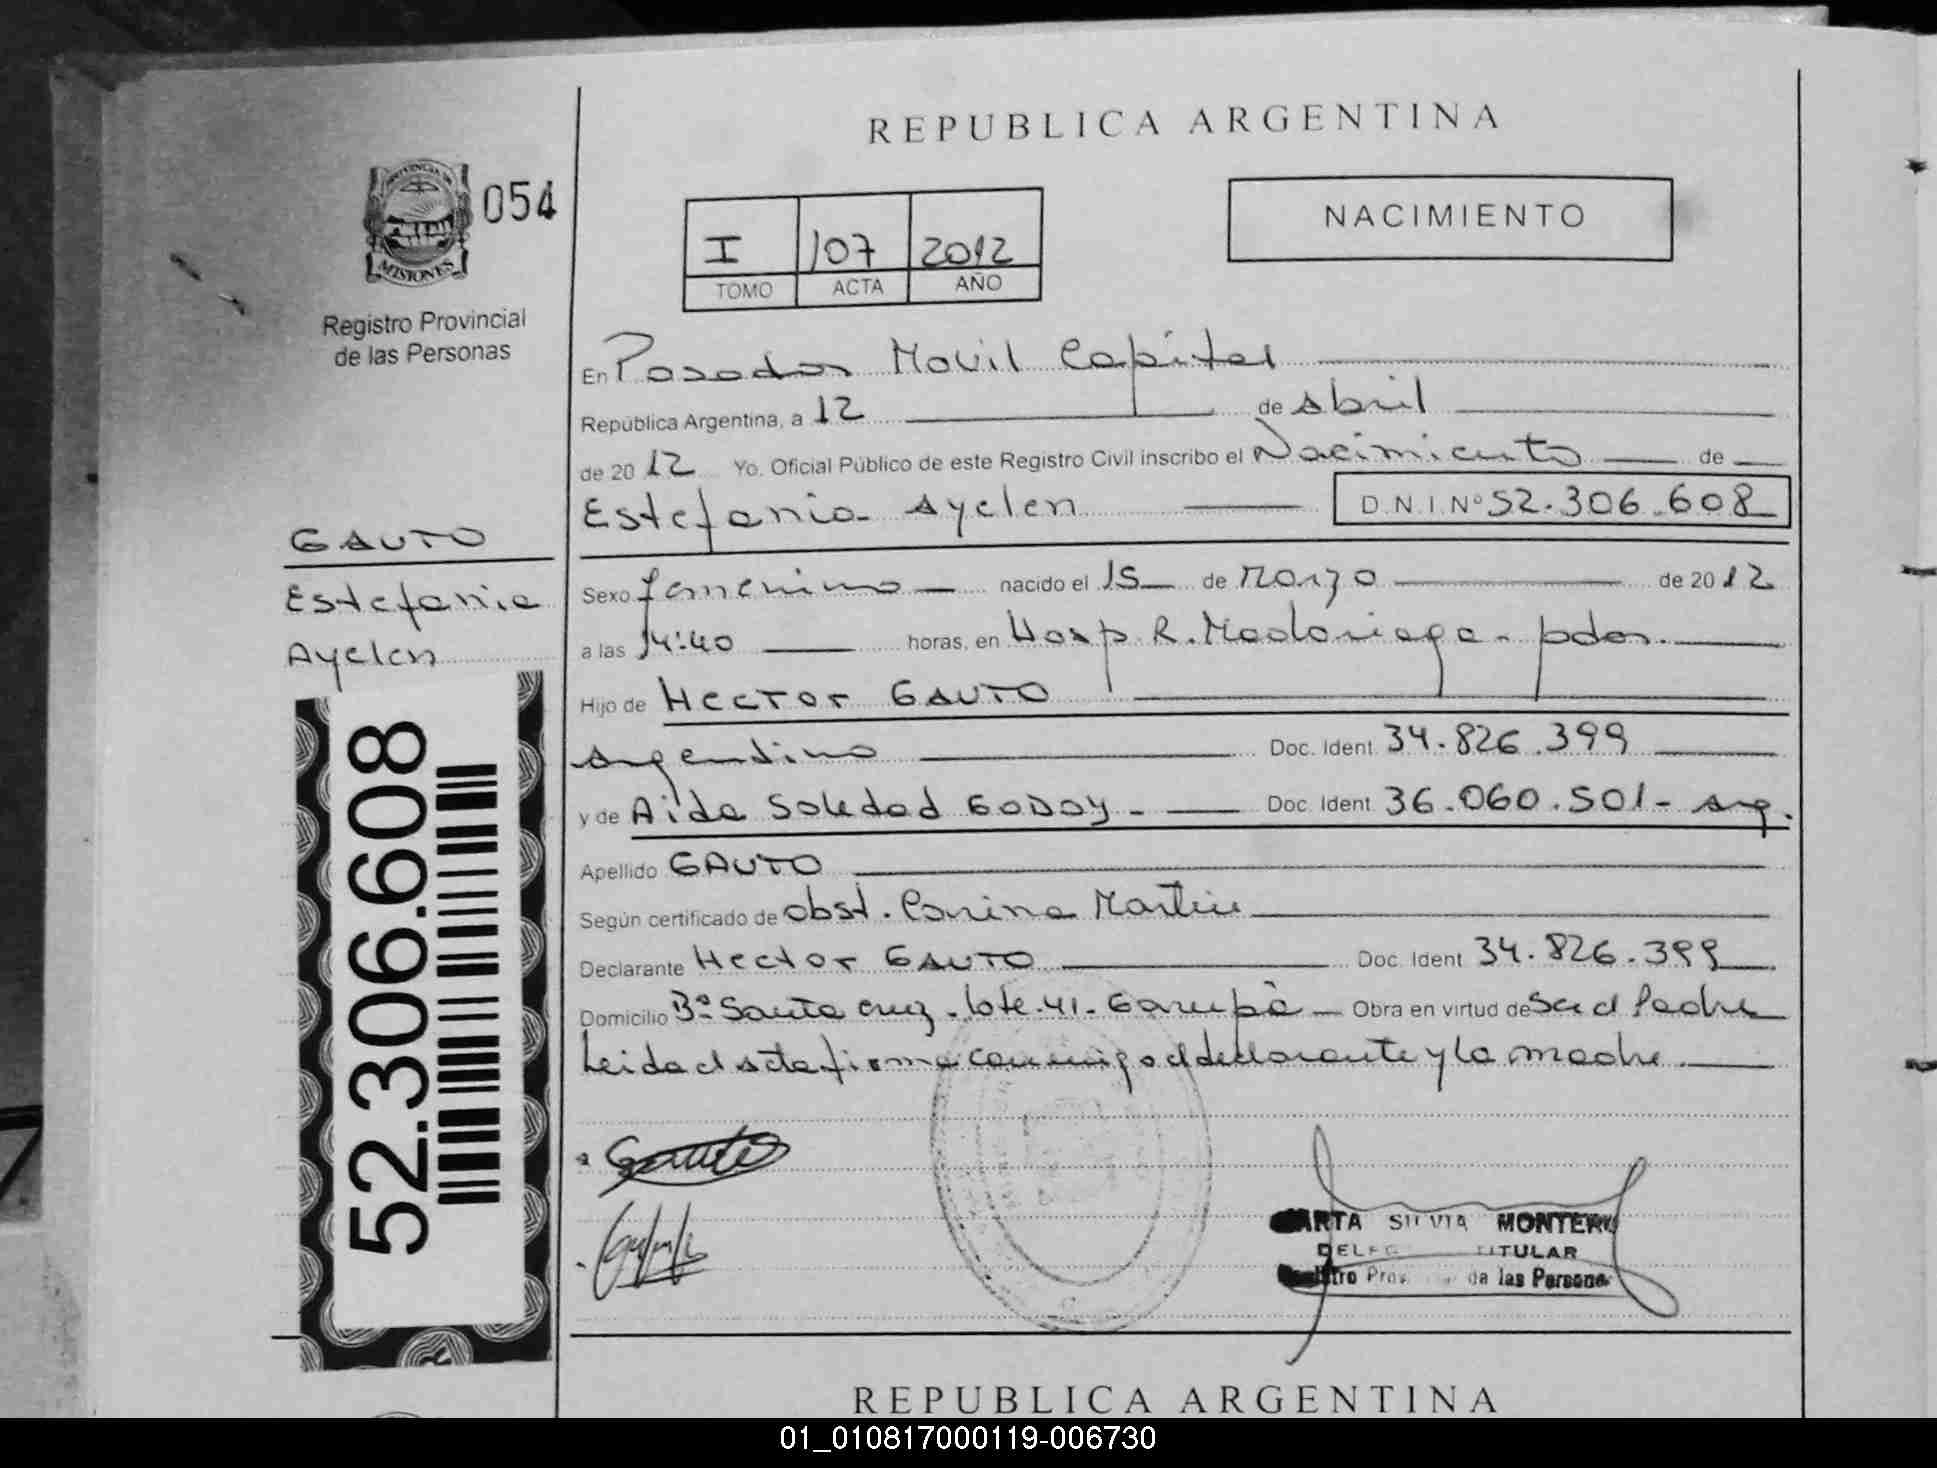 REPUBLICA ARGENTINA
PROVINCIA DE
MISIONES
054
Registro Provincial
de las Personas
I 107 2012
TOMO ACTA AÑO
NACIMIENTO
En Posadas Movil Capital
República Argentina, a 12 de Abril
de 2012 Yo. Oficial Público de este Registro Civil inscribo el Nacimiento de
Estefania Ayelen D.N.I. Nº 52.306.608
GAUTO
Estefania
Ayelen
52.306.608
Sexo femenino nacido el 15 de Marzo de 2012
a las 14:40 horas, en Hosp R. Madariaga - pdas.
Hijo de Hector GAUTO
Argentino Doc. Ident. 34.826.399
y de Aida Soledad GODOY - Doc. Ident. 36.060.501 - Arg.
Apellido GAUTO
Según certificado de obst. Corina Martin
Declarante Hector GAUTO Doc. Ident 34.826.399
Domicilio Bº Santa Cruz - lote 41 - Garupà - Obra en virtud de Ser el Padre
Leida el Acta firma conmigo el declarante y la madre
Gauto
MARTA SILVIA MONTERO
TITULAR
de las Persona
REPUBLICA ARGENTINA
01_010817000119-006730